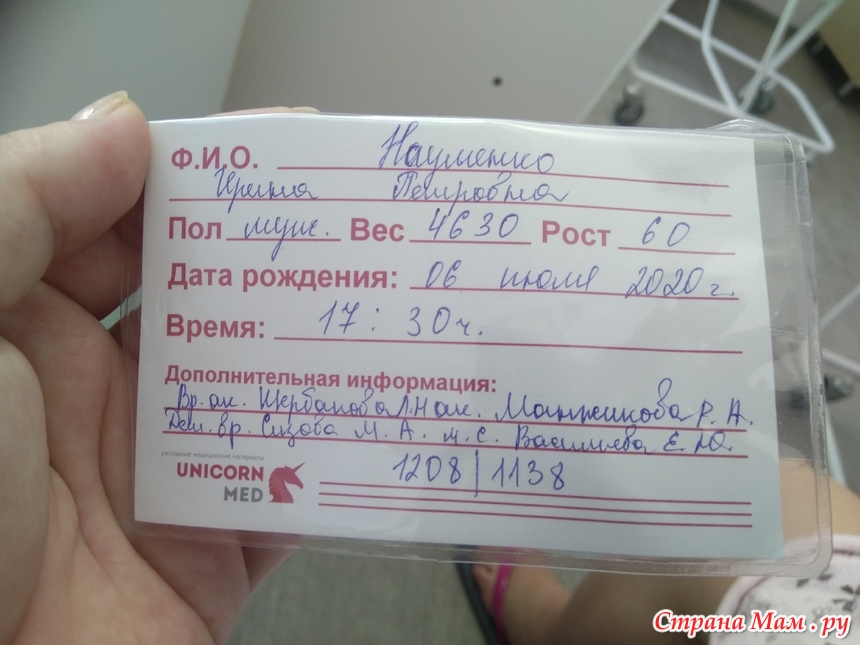 Ф.И.О. Науменко
Ирина Петровна
Пол муж. Вес 4630 Рост 60
Дата рождения: 06 июля 2020 г.
Время: 17:30 ч.
Дополнительная информация:
Вр. ак. Щербакова Л.Н ак. Манжикова Р. А.
Дет. вр. Сизова М. А. м. с. Васильева Е. Ю.
расходные медицинские материалы
UNICORN
MED
1208 | 1138
Страна Мам.ру